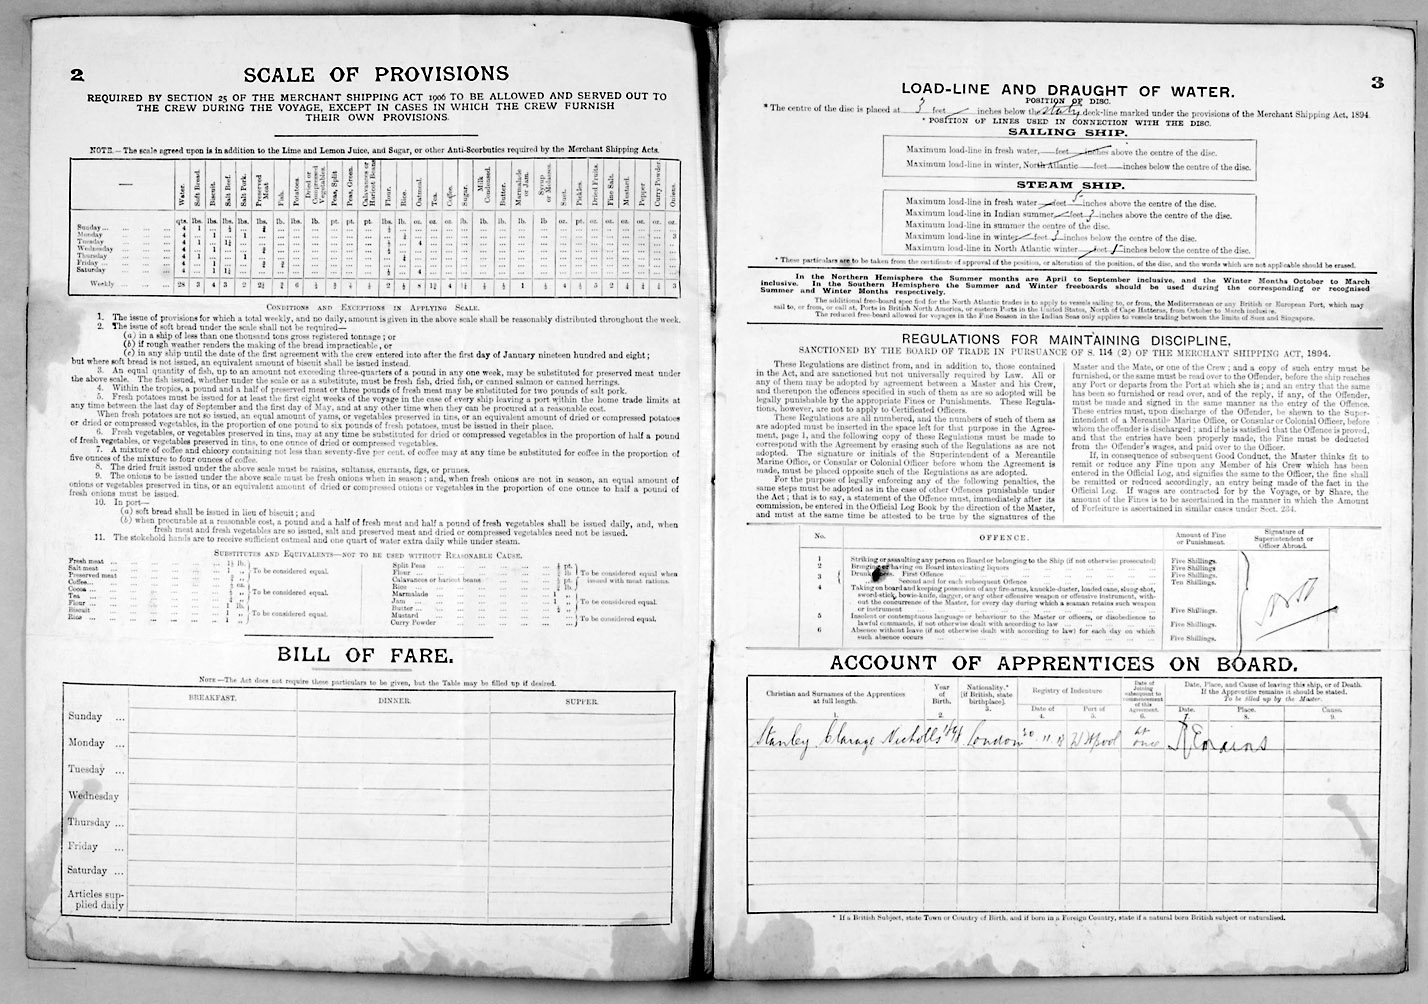 2
SCALE OF PROVISIONS
REQUIRED BY SECTION 25 OF THE MERCHANT SHIPPING ACT 1906 TO BE ALLOWED AND SERVED OUT TO
THE CREW DURING THE VOYAGE, EXCEPT IN CASES IN WHICH THE CREW FURNISH
THEIR OWN PROVISIONS.
NOTE.—The scale agreed upon is in addition to the Lime and Lemon Juice, and Sugar, or other Anti-Scorbutics required by the Merchant Shipping Acts.
Water. Soft Bread. Biscuit. Salt Beef. Salt Pork. Preserved Meat. Fish. Potatoes. Dried or Compressed Vegetables. Peas, Split Peas, Green. Calavances or Haricot Beans Flour. Rice. Oatmeal. Tea. Coffee. Sugar. Milk Condensed. Butter. Marmalade or Jam. Syrup or Molasses. Suet. Pickles. Dried Fruits. Fine Salt. Mustard. Pepper Curry Powder. Onions.
qts. lbs. lbs. lbs. lbs. lbs. lbs. lbs. lb. pt. pt. pt. lbs. lb. oz. oz. oz. lb. lb. lb. lb. lb oz. pt. oz. oz. oz. oz. oz. oz.
Sunday
Monday
Tuesday
Wednesday
Thursday
Friday
Saturday
Weekly
CONDITIONS AND EXCEPTIONS IN APPLYING SCALE.
1. The issue of provisions for which a total weekly, and no daily, amount is given in the above scale shall be reasonably distributed throughout the week.
2. The issue of soft bread under the scale shall not be required—
(a) in a ship of less than one thousand tons gross registered tonnage; or
(b) if rough weather renders the making of the bread impracticable, or
(c) in any ship until the date of the first agreement with the crew entered into after the first day of January nineteen hundred and eight;
but where soft bread is not issued, an equivalent amount of biscuit shall be issued instead.
3. An equal quantity of fish, up to an amount not exceeding three-quarters of a pound in any one week, may be substituted for preserved meat under
the above scale. The fish issued, whether under the scale or as a substitute, must be fresh fish, dried fish, or canned salmon or canned herrings.
4. Within the tropics, a pound and a half of preserved meat or three pounds of fresh meat may be substituted for two pounds of salt pork.
5. Fresh potatoes must be issued for at least the first eight weeks of the voyage in the case of every ship leaving a port within the home trade limits at
any time between the last day of September and the first day of May, and at any other time when they can be procured at a reasonable cost.
When fresh potatoes are not so issued, an equal amount of yams, or vegetables preserved in tins, or an equivalent amount of dried or compressed potatoes
or dried or compressed vegetables, in the proportion of one pound to six pounds of fresh potatoes, must be issued in their place.
6. Fresh vegetables, or vegetables preserved in tins, may at any time be substituted for dried or compressed vegetables in the proportion of half a pound
of fresh vegetables, or vegetables preserved in tins, to one ounce of compressed vegetables.
7. A mixture of coffee and chicory containing not less than seventy-five per cent. of coffee may at any time be substituted for coffee in the proportion of
five ounces of the mixture to four ounces of coffee.
8. The dried fruit issued under the above scale must be raisins, sultanas, currants, figs, or prunes.
9. The onions to be issued under the above scale must be fresh onions when in season; and, when fresh onions are not in season, an equal amount of
onions or vegetables preserved in tins, or an equivalent amount of dried or compressed onions or vegetables in the proportion of one ounce to half a pound of
fresh onions must be issued.
10. In port—
(a) soft bread shall be issued in lieu of biscuit; and
(b) when procurable at a reasonable cost, a pound and a half of fresh meat and half a pound of fresh vegetables shall be issued daily, and, when
fresh meat and fresh vegetables are so issued, salt and preserved meat and dried or compressed vegetables need not be issued.
11. The stokehold hands are to receive sufficient oatmeal and one quart of water extra daily while under steam.
SUBSTITUTES AND EQUIVALENTS—NOT TO BE USED WITHOUT REASONABLE CAUSE.
Fresh meat
Salt meat
Preserved meat
To be considered equal.
Coffee
Cocoa
Tea
To be considered equal.
Flour
Biscuit
Rice
To be considered equal.
Split Peas
Flour
Calavances or haricot beans
Rice
To be considered equal when issued with meat rations.
Marmalade
Jam
Butter
To be considered equal.
Mustard
Curry Powder
To be considered equal.
BILL OF FARE.
NOTE—The Act does not require these particulars to be given, but the Table may be filled up if desired.
BREAKFAST. DINNER. SUPPER.
Sunday ...
Monday ...
Tuesday ...
Wednesday
Thursday ...
Friday ...
Saturday ...
Articles sup-
plied daily
3
LOAD-LINE AND DRAUGHT OF WATER.
POSITION OF DISC.
* The centre of the disc is placed at 3 feet inches below the deck-line marked under the provisions of the Merchant Shipping Act, 1894.
* POSITION OF LINES USED IN CONNECTION WITH THE DISC.
SAILING SHIP.
Maximum load-line in fresh water, feet inches above the centre of the disc.
Maximum load-line in winter, North Atlantic feet inches below the centre of the disc.
STEAM SHIP.
Maximum load-line in fresh water feet inches above the centre of the disc.
Maximum load-line in Indian summer feet inches above the centre of the disc.
Maximum load-line in summer the centre of the disc.
Maximum load-line in winter feet inches below the centre of the disc.
Maximum load-line in North Atlantic winter feet inches below the centre of the disc.
* These particulars are to be taken from the certificate of approval of the position, or alteration of the position, of the disc, and the words which are not applicable should be erased.
In the Northern Hemisphere the Summer months are April to September inclusive, and the Winter Months October to March
inclusive. In the Southern Hemisphere the Summer and Winter freeboards should be used during the corresponding or recognised
Summer and Winter Months respectively.
The additional free-board specified for the North Atlantic trades is to apply to vessels sailing to, or from, the Mediterranean or any British or European Port, which may
sail to, or from, or call at, Ports in British North America, or eastern Ports in the United States, North of Cape Hatteras, from October to March inclusive.
The reduced free-board allowed for voyages in the Fine Season in the Indian Seas only applies to vessels trading between the limits of Suez and Singapore.
REGULATIONS FOR MAINTAINING DISCIPLINE,
SANCTIONED BY THE BOARD OF TRADE IN PURSUANCE OF S. 114 (2) OF THE MERCHANT SHIPPING ACT, 1894.
These Regulations are distinct from, and in addition to, those contained
in the Act, and are sanctioned but not universally required by Law. All or
any of them may be adopted by agreement between a Master and his Crew,
and thereupon the offences specified in such of them as are so adopted will be
legally punishable by the appropriate Fines or Punishments. These Regula-
tions, however, are not to apply to Certificated Officers.
These Regulations are all numbered, and the numbers of such of them as
are adopted must be inserted in the space left for that purpose in the Agree-
ment, page 1, and the following copy of these Regulations must be made to
correspond with the Agreement by erasing such of the Regulations as are not
adopted. The signature or initials of the Superintendent of a Mercantile
Marine Office, or Consular or Colonial Officer before whom the Agreement is
made, must be placed opposite such of the Regulations as are adopted.
For the purpose of legally enforcing any of the following penalties, the
same steps must be adopted as in the case of other Offences punishable under
the Act; that is to say, a statement of the Offence must, immediately after its
commission, be entered in the Official Log Book by the direction of the Master,
and must at the same time be attested to be true by the signatures of the
Master and the Mate, or one of the Crew; and a copy of such entry must be
furnished, or the same must be read over to the Offender, before the ship reaches
any Port or departs from the Port at which she is; and an entry that the same
has been so furnished or read over, and of the reply, if any, of the Offender,
must be made and signed in the same manner as the entry of the Offence.
These entries must, upon discharge of the Offender, be shewn to the Super-
intendent of a Mercantile Marine Office, or Consular or Colonial Officer, before
whom the offender is discharged; and if he is satisfied that the Offence is proved,
and that the entries have been properly made, the Fine must be deducted
from the Offender's wages, and paid over to the Officer.
If, in consequence of subsequent Good Conduct, the Master thinks fit to
remit or reduce any Fine upon any Member of his Crew which has been
entered in the Official Log, and signifies the same to the Officer, the fine shall
be remitted or reduced accordingly, an entry being made of the fact in the
Official Log. If wages are contracted for by the Voyage, or by Share, the
amount of the Fines is to be ascertained in the manner in which the Amount
of Forfeiture is ascertained in similar cases under Sect. 234.
No. OFFENCE. Amount of Fine or Punishment. Signature of Superintendent or Officer Abroad.
1 Striking or assaulting any person on Board or belonging to the Ship (if not otherwise prosecuted) Five Shillings.
2 Bringing or having on Board intoxicating liquors Five Shillings
3 First Offence Five Shillings.
Second and for each subsequent Offence Ten Shillings.
4 Taking on board and keeping possession of any fire-arms, knuckle-duster, loaded cane, slung shot,
sword-stick, bowie-knife, dagger, or any other offensive weapon or offensive instrument, with-
out the concurrence of the Master, for every day during which a seaman retains such weapon
or instrument Five Shillings.
5 Insolent or contemptuous language or behaviour to the Master or officers, or disobedience to
lawful commands, if not otherwise dealt with according to law Five Shillings.
6 Absence without leave (if not otherwise dealt with according to law) for each day on which
such absence occurs Five Shillings.
ACCOUNT OF APPRENTICES ON BOARD.
Christian and Surnames of the Apprentices at full length. 1. Year of Birth. 2. Nationality.* [if British, state birthplace]. 3. Registry of Indenture Date of 4. Port of 5. Date of Joining subsequent to commencement of this Agreement. 6. Date, Place, and Cause of leaving this ship, or of Death. If the Apprentice remains it should be stated. To be filled up by the Master. Date. Place. 8. Cause. 9.
Stanley Nicholls London at once Remains
* If a British Subject, state Town or Country of Birth, and if born in a Foreign Country, state if a natural born British subject or naturalised.